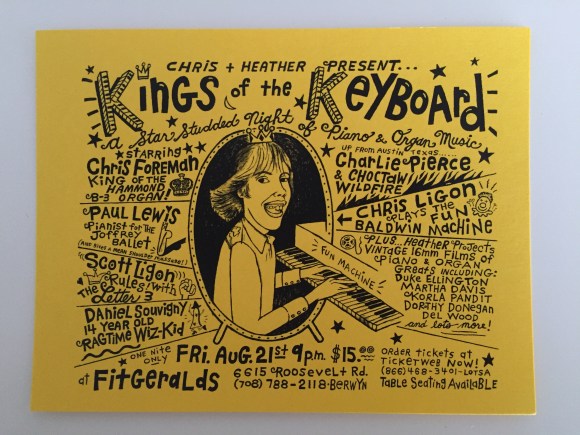 CHRIS + HEATHER PRESENT...
KINGS of the KEYBOARD
a Star Studded Night of Piano & Organ Music
STARRING
CHRIS FOREMAN
KING OF THE
HAMMOND
B-3 ORGAN!
PAUL LEWIS
PIANIST FOR THE
JOFFREY
BALLET
(AND GIVES A MEAN SHOULDER MASSAGE!!)
SCOTT LIGON
RULES! WITH
THE Letter 3
DANIEL SOUVIGNY
14 YEAR OLD
RAGTIME WIZ-KID
FUN MACHINE
UP FROM AUSTIN TEXAS......
CHARLIE PIERCE
& CHOCTAW
WILDFIRE
CHRIS LIGON
PLAYS THE FUN
BALDWIN MACHINE
PLUS.. HEATHER PROJECTS
VINTAGE 16MM FILMS OF
PIANO & ORGAN
GREATS INCLUDING:
DUKE ELLINGTON
MARTHA DAVIS
KORLA PANDIT
DORTHY DONEGAN
DEL WOOD
and lots more!
ONE NITE
ONLY
FRI. AUG. 21st 9p.m. $15.00
at FITGERALDS
6615 ROOSEVELT RD.
(708) 788-2118 • BERWYN
ORDER TICKETS AT
TICKETWEB NOW!
(866) 468-3401 - LOTSA
TABLE SEATING AVAILABLE